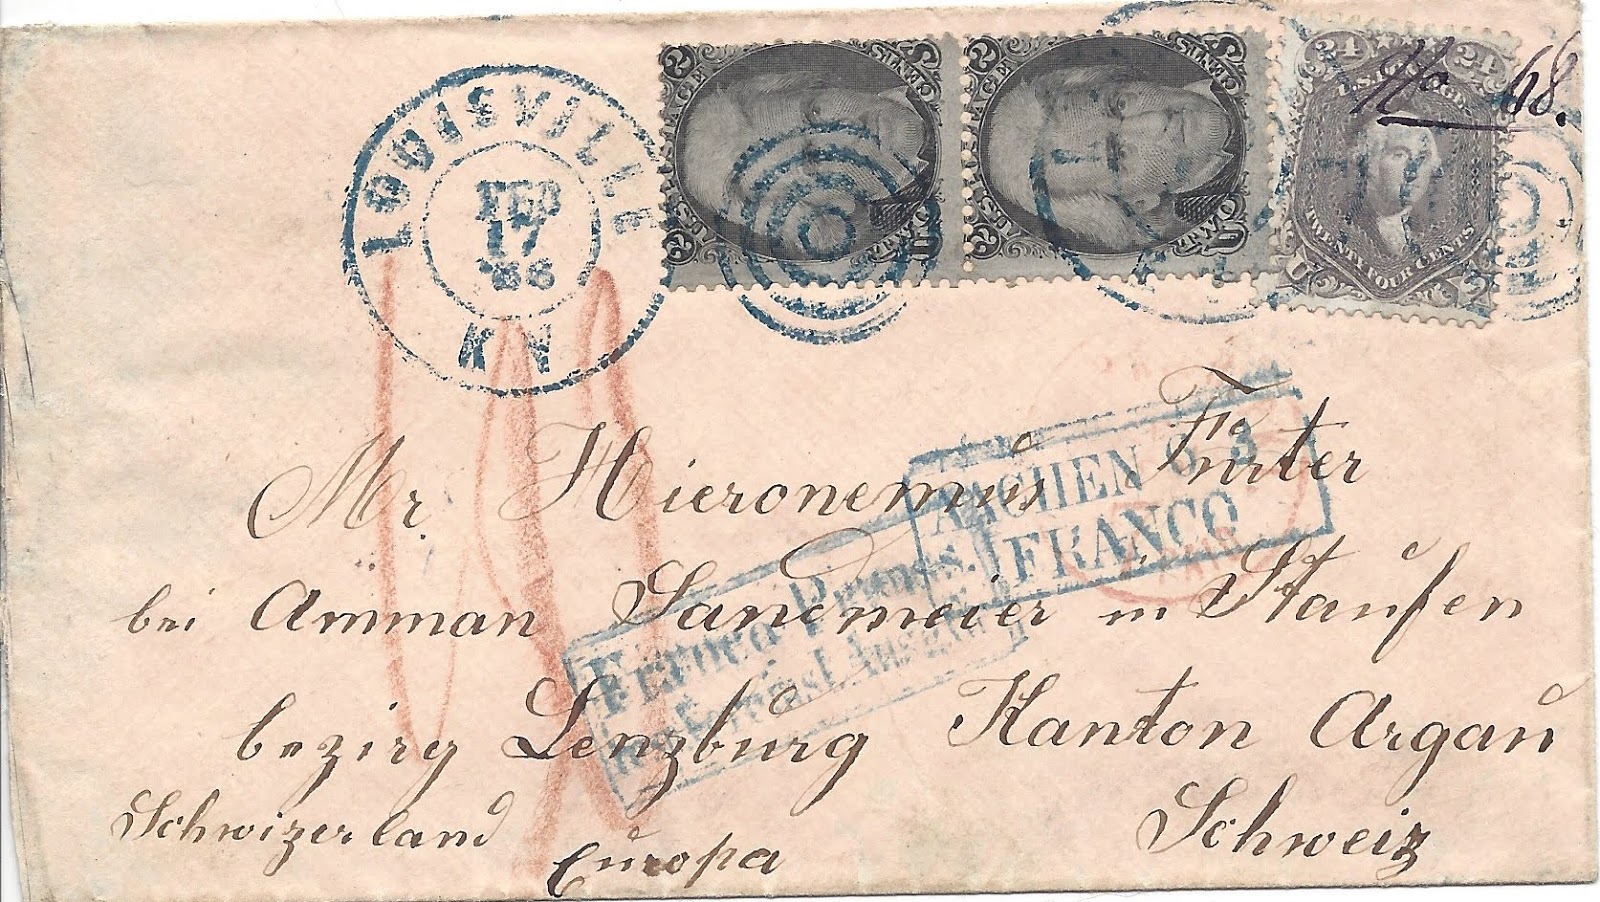 LOUISVILLE
FEB
17
'66
KY
2 U.S. POSTAGE 2
TWO CENTS
2 U.S. POSTAGE 2
TWO CENTS
24 24
U.S. POSTAGE
TWENTY FOUR CENTS
U S
No 68.
AACHEN 3
FRANCO
Franco Preuss.
Mr Hieronemus Furter
bei Amman Sandmeier in Staufen
bezirg Lenzburg Kanton Argau
Schwizerland Europa Schweiz